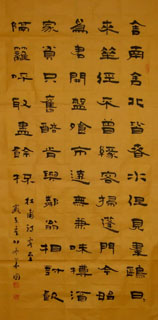 舍南舍北皆春水但見群鷗日日
來花徑不曾緣客掃蓬門今始
為君開盤飧市遠無兼味樽酒
家貧只舊醅肯與鄰翁相對飲
隔籬呼取盡餘杯
杜甫詩客至